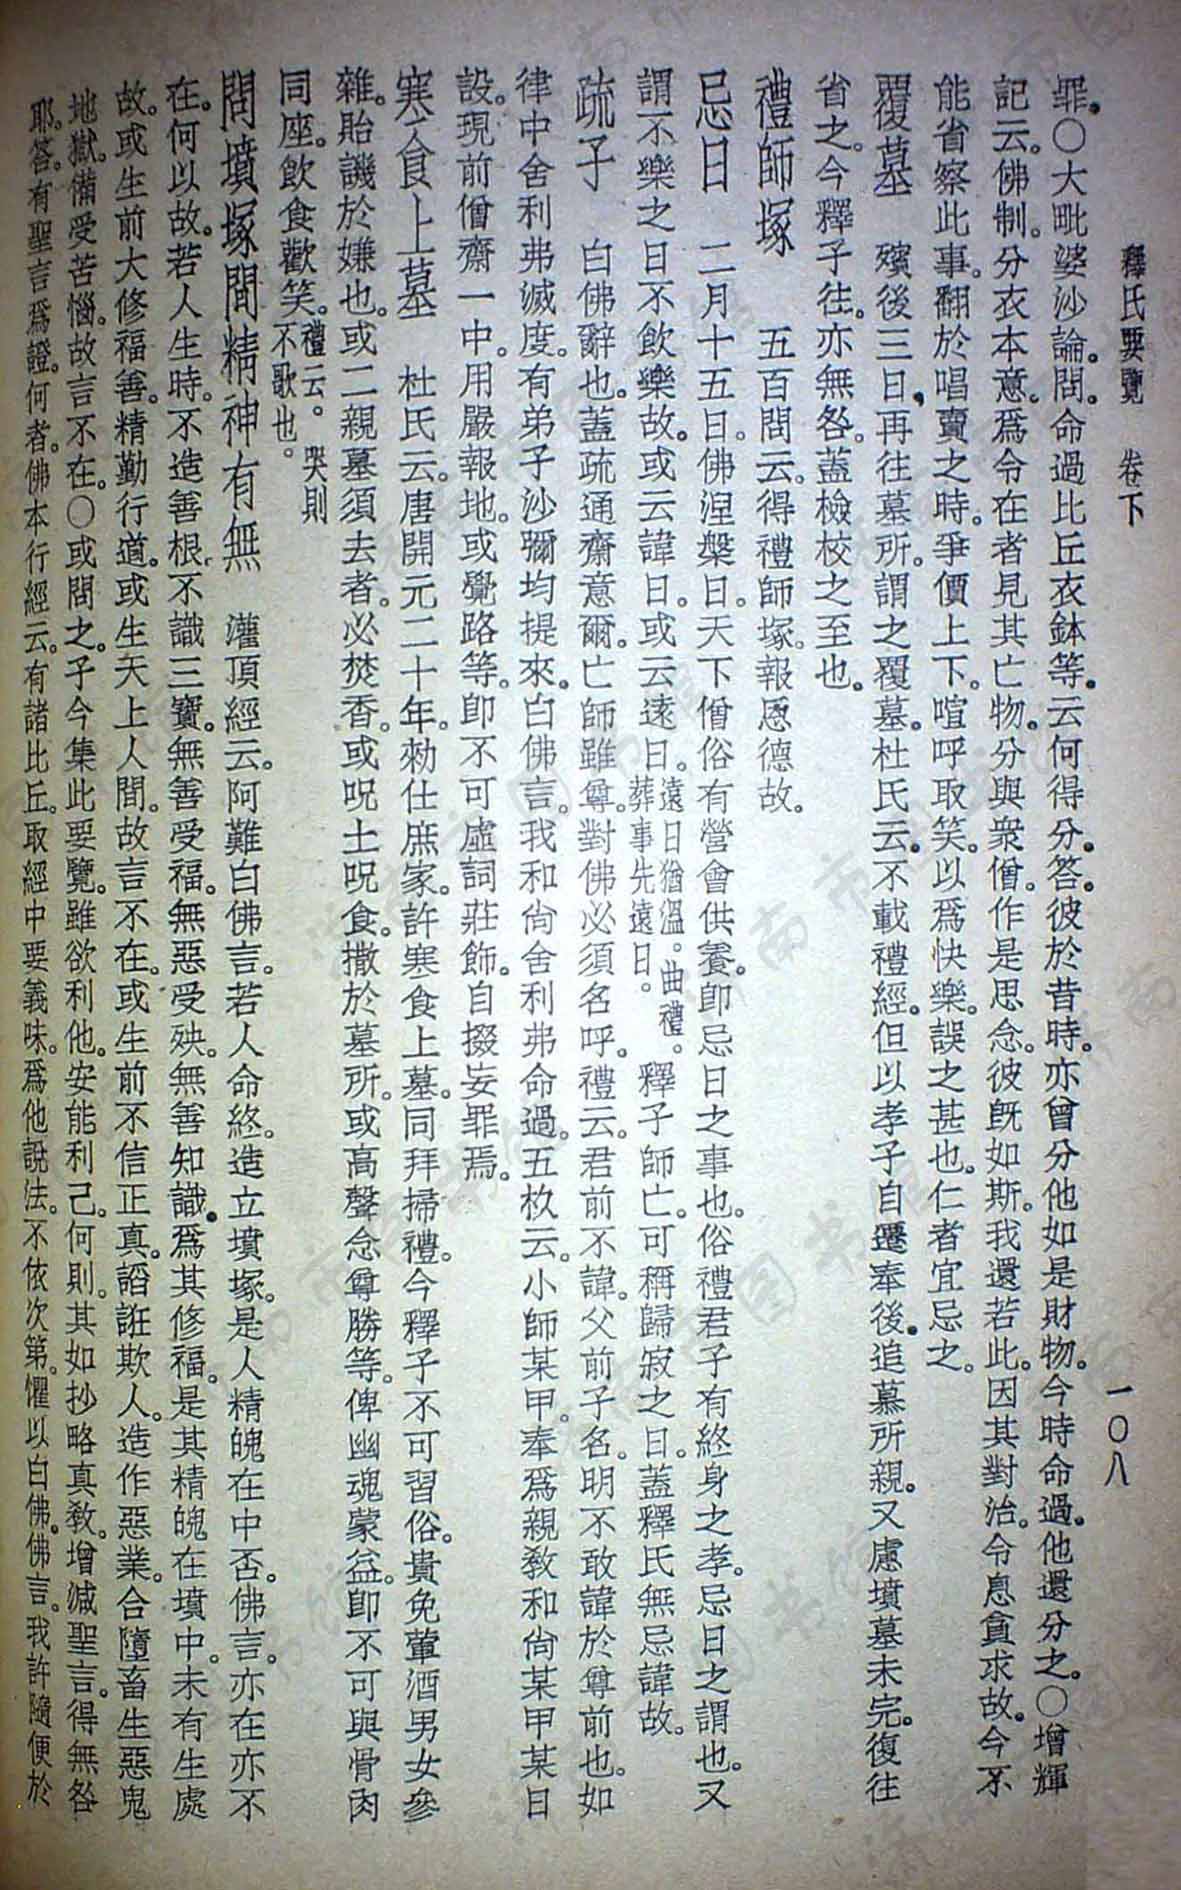 釋氏要覽　卷下　一〇八
罪。〇大毗婆沙論。問。命過比丘衣鉢等。云何得分。答。彼於昔時。亦曾分他如是財物。今時命過。他還分之。〇增輝
記云。佛制。分衣本意。爲令在者見其亡物。分與衆僧。作是思念。彼既如斯。我還若此。因其對治。令息貪求故。今不
能省察此事。翻於唱賣之時。爭價上下。喧呼取笑。以爲快樂。誤之甚也。仁者宜忌之。
覆墓　殯後三日。再往墓所。謂之覆墓。杜氏云。不載禮經。但以孝子自遷奉後。追慕所親。又慮墳墓未完。復往
省之。今釋子往。亦無咎。蓋檢校之至也。
禮師塚　五百問云。得禮師塚。報恩德故。
忌日　二月十五日。佛涅槃日。天下僧俗有營會供養。卽忌日之事也。俗禮君子有終身之孝。忌日之謂也。又
謂不樂之日不飲樂故。或云諱日。或云遠日。遠日猶溫。曲禮。葬事先遠日。釋子師亡。可稱歸寂之日。蓋釋氏無忌諱故。
疏子　白佛辭也。蓋疏通齋意爾。亡師雖尊。對佛必須名呼。禮云。君前不諱。父前子名。明不敢諱於尊前也。如
律中舍利弗滅度。有弟子沙彌均提來。白佛言。我和尙舍利弗命過。五杦云。小師某甲。奉爲親教和尙某甲某日
設。現前僧齋一中。用嚴報地。或覺路等。卽不可虛詞莊飾。自掇妄罪焉。
寒食上墓　杜氏云。唐開元二十年。勑仕庶家。許寒食上墓。同拜掃禮。今釋子不可習俗。貴免葷酒男女參
雜。貽譏於嫌也。或二親墓須去者。必焚香。或呪土呪食。撒於墓所。或高聲念尊勝等。俾幽魂蒙益。卽不可與骨肉
同座。飲食歡笑。禮云。哭則不歌也。
問墳塚間精神有無　灌頂經云。阿難白佛言。若人命終。造立墳塚。是人精魄在中否。佛言。亦在亦不
在。何以故。若人生時。不造善根。不識三寶。無善受福。無惡受殃。無善知識。爲其修福。是其精魄在墳中。未有生處
故。或生前大修福善。精勤行道。或生天上人間。故言不在。或生前不信正真。謟誑欺人。造作惡業。合墮畜生惡鬼
地獄。備受苦惱。故言不在。〇或問之。子今集此要覽。雖欲利他。安能利己。何則。其如抄略真教。增減聖言。得無咎
耶。答。有聖言爲證。何者。佛本行經云。有諸比丘。取經中要義味。爲他說法。不依次第。懼以白佛。佛言。我許隨便於